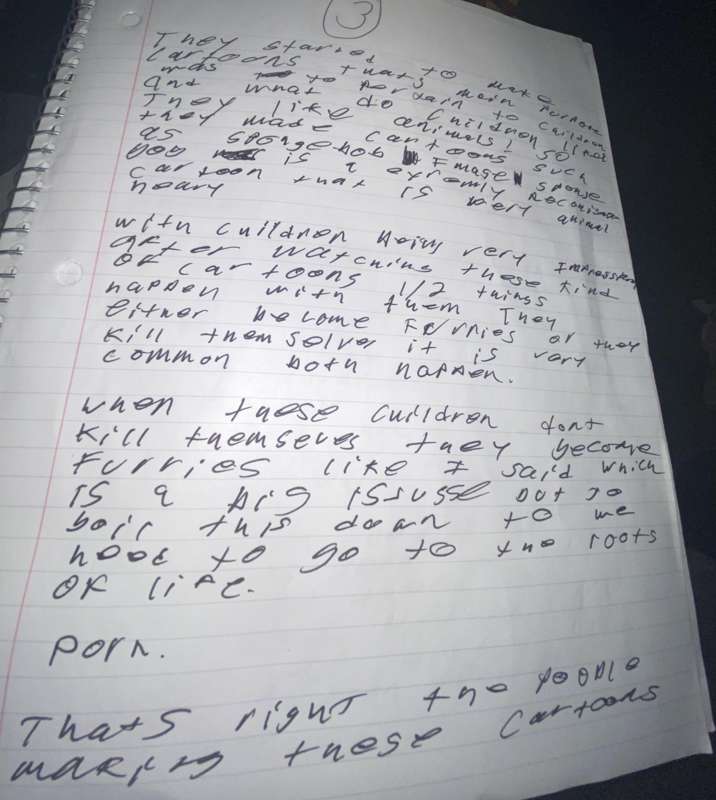 3
They started to make
cartoons thats main purpose
was to pertain to children
and what do children like?
They like animals! so
they made cartoons such
as spongebob Image sponge
bob is a extremly reconisable
cartoon that is very animal
heavy
with children being very Impressionable
after watching these kind
of cartoons 1/2 things
happen with them They
either become Furries or they
kill themselves it is very
common both happen.
when these children dont
kill themseves they become
Furries like I said which
is a big issusse but to
boil this down to we
need to go to the roots
of life.
porn.
Thats right the people
making these cartoons